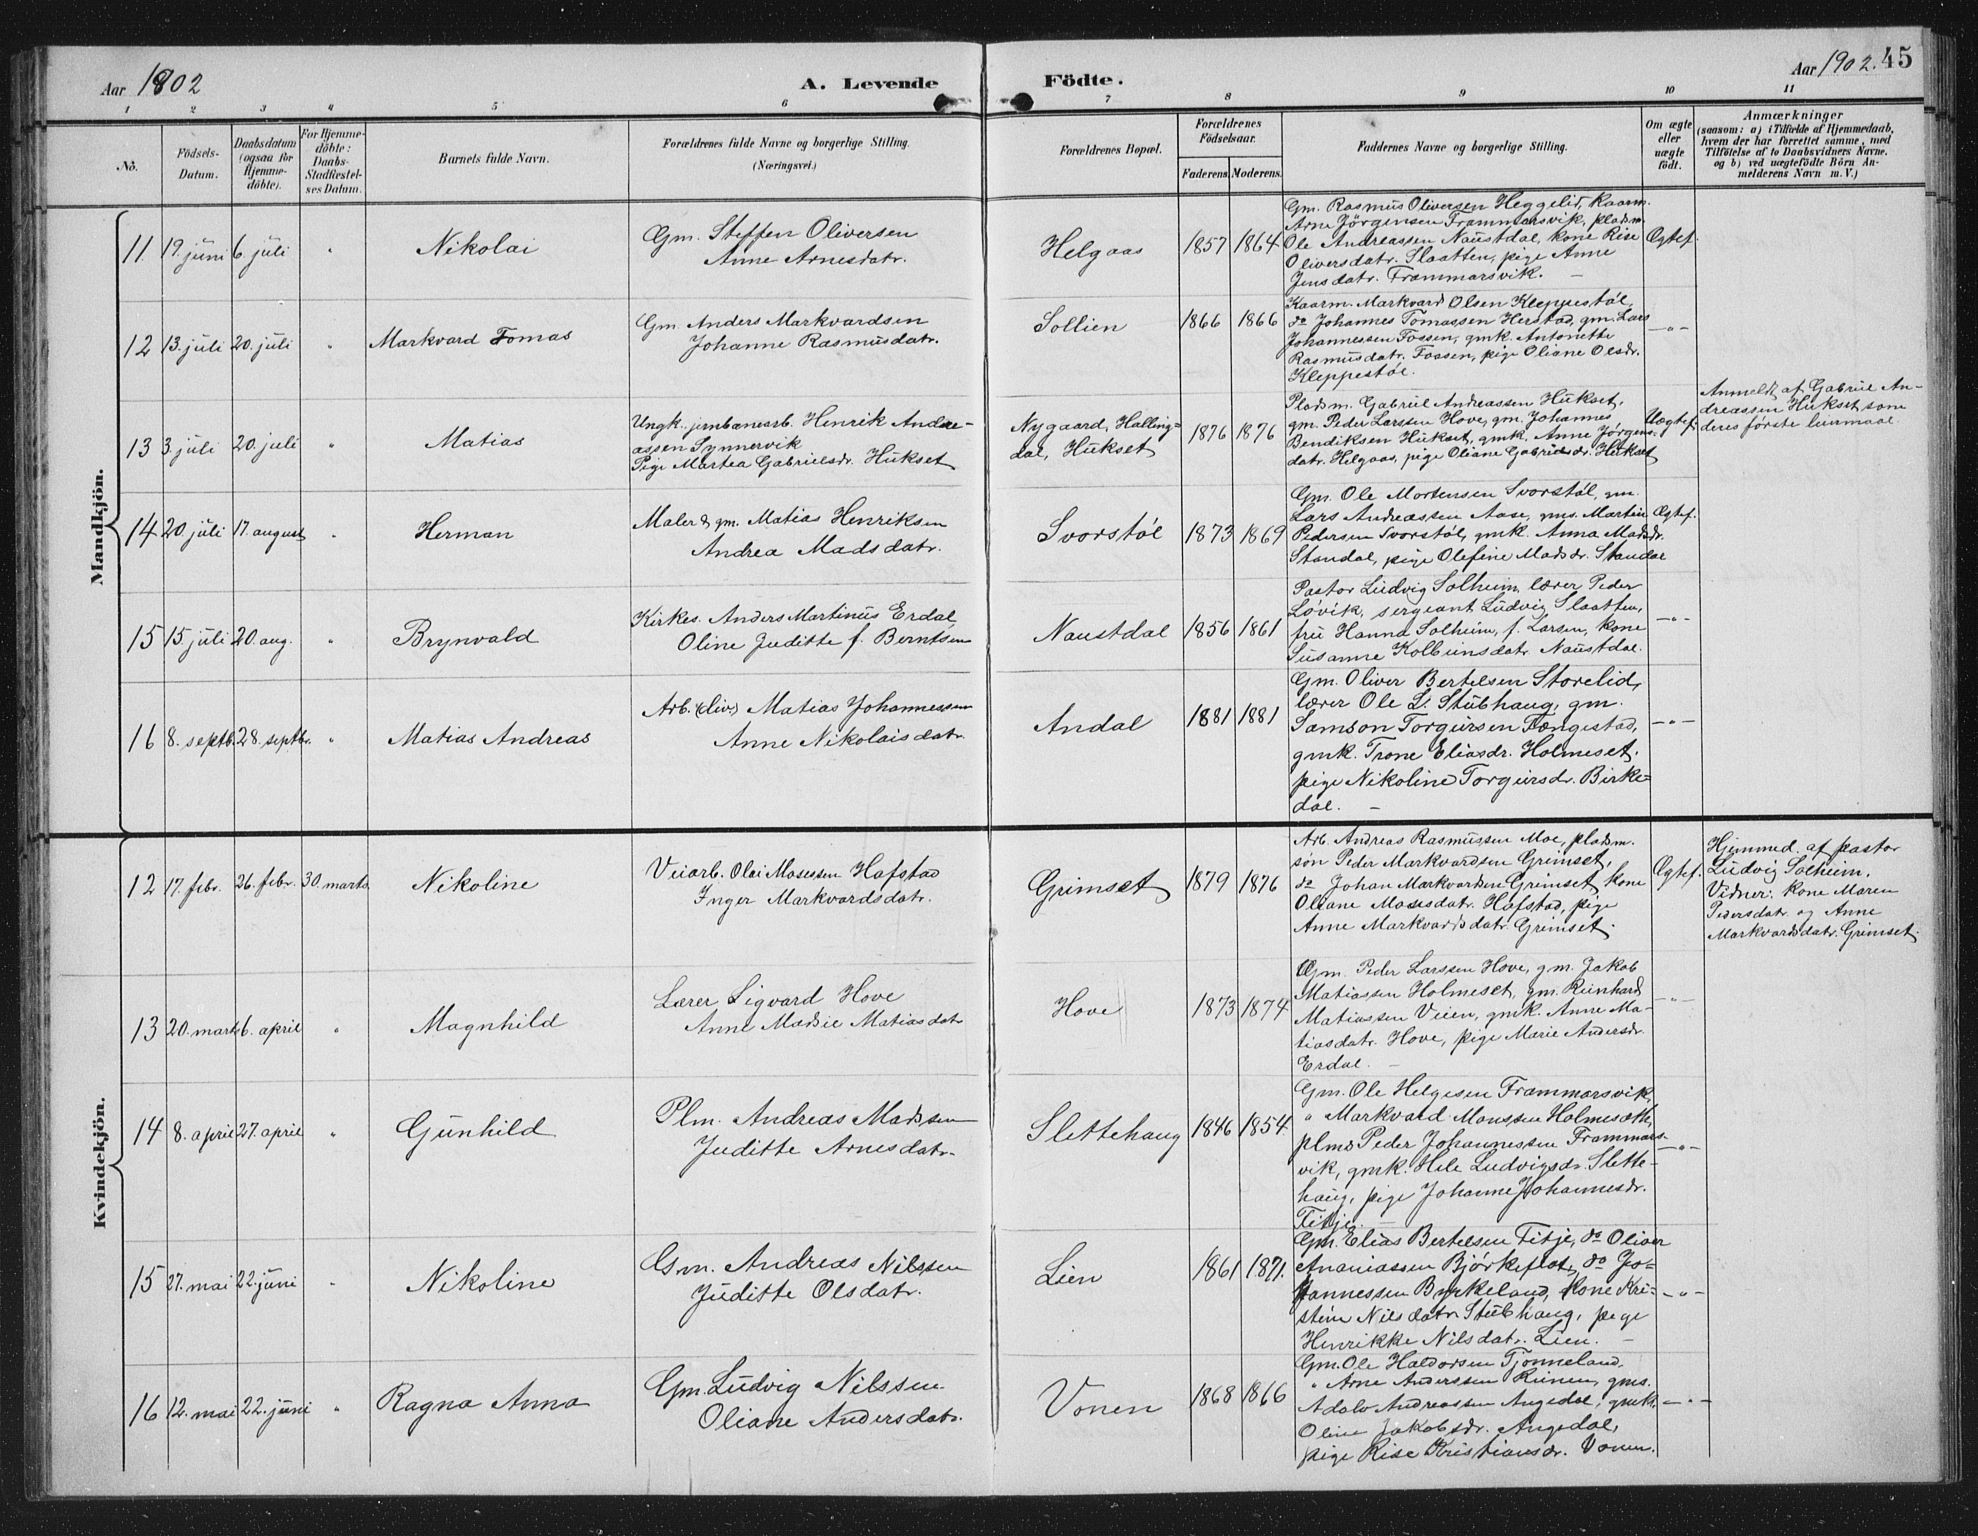 Aar 1902
A. Levende Födte.
Aar 1902. 45
1 2 3 4 5 6 7 8 9 10 11
No.
Födsels-
Datum.
Daabsdatum
(ogsaa for
Hjemme-
döbte).
For Hjemme-
döbte:
Daabs-
Stadfæstel-
ses Datum.
Barnets fulde Navn.
Forældrenes fulde Navne og borgerlige Stilling.
(Næringsvei.)
Forældrenes Bopæl.
Forældrenes
Födselsaar.
Faderens. Moderens.
Faddernes Navne og borgerlige Stilling.
Om ægte
eller
uægte
födt.
Anmærkninger
(saasom: a) i Tilfælde af Hjemmedaab,
hvem der har forrettet samme, med
Tilföielse af to Daabsvidners Navne.
og b) ved uægtefödte Börn An-
melderens Navn m. V.)
Mandkjön.
11 19 juni 6 juli " Nikolai
Gm. Steffen Oliversen
Anne Arnesdatr.
Helgaas 1857 1864
Gm. Rasmus Oliversen Heggelid, kaarm.
Arne Jörgensen Frammarsvik, pladsm.
Ole Andreassen Naustdal, kone Rise
Oliversdatr. Slaatten, pige Anne
Jensdatr. Frammarsvik. –
Ægtef.
12 13. juli 20. juli " Markvard Tomas
Gm. Anders Markvardsen
Johanne Rasmusdatr.
Sollien 1866 1866
Kaarm. Markvard Olsen Kleppestøl,
do Johannes Tomassen Herstad, gm. Lars
Johannessen Fossen, gmk. Antonette
Rasmusdatr. Fossen, pige Oliane Olsdr.
Kleppestøl.
–"–
13 3. juli 20. juli " Matias
Ungk. jrnbanearb. Henrik Andre-
assen Synnervik
Pige Martea Gabrielsdr. Hukset
Nygaard, Halling-
dal, Hukset
1876 1876
Pladsm. Gabriel Andreassen Hukset,
gm. Peder Larssen Hove, gm. Johannes
Bendiksen Hukset, gmk. Anne Jørgens-
datr. Helgaas, pige Oliane Gabrielsdr. Hukset
Uægtef.
Anmeldt af Gabriel An-
dreassen Hukset som
deres første leiermaal.
14 20. juli 17. august " Herman
Maler & gm. Matias Henriksen
Andrea Madsdatr.
Svorstøl 1873 1869
Gm. Ole Mortensen Svorstøl, gm.
Lars Andreassen Aase, gms. Martin
Pedersen Svorstøl, gmk. Anna Madsdr.
Standal, pige Olefine Madsdr. Standal
Ægtef.
15 15 juli 20. aug. " Brynvald
Kirkes. Anders Martinus Erdal,
Oline Juditte f. Berntsen
Naustdal 1856 1861
Pastor Ludvig Solheim, lærer Peder
Løvik, sergeant Ludvig Slaatten,
fru Hanna Solheim, f. Larsen, kone
Susanne Kolbeinsdatr. Naustdal.
–"–
16 8. septb. 28. septbr. " Matias Andreas
Arb. (div.) Matias Johannessen
Anne Nikolaisdatr.
Andal 1881 1881
Gm. Oliver Bertelsen Storelid,
lærer Ole L. Stubhaug, gm.
Samson Torgursen Fængestad,
gmk. Trone Eliasdr. Holmeset,
pige Nikoline Torgursdr. Birke-
dal. –
–"–
Kvindekjön.
12 17. febr. 26. febr. 30. marts. Nikoline
Veiarb. Olai Mosessen Hafstad
Inger Markvardsdatr.
Grimset 1879 1876
Arb. Andreas Rasmussen Moe, pladsm.
søn Peder Markvardsen Grimset,
do Johan Markvardsen Grimset, kone
Oliane Mosesdatr. Hafstad, pige
Anne Markvardsdatr. Grimset.
Ægtef.
Hjemmed. af pastor
Ludvig Solheim.
Vidner: kone Maren
Pedersdatr. og Anne
Markvardsdatr. Grimset.
13 20. marts 6. april " Magnhild
Lærer Sigvard Hove
Anne Marie Matiasdatr
Hove 1873 1874
Gm. Peder Larssen Hove, gm. Jakob
Matiassen Holmeset, gm. Reinhard
Matiassen Veien, gmk. Anne Ma-
tiasdatr. Hove, pige Marie Andersdr.
Erdal. –
–"–
14 8. april 27. april " Gunhild
Plm. Andreas Madssen
Juditte Arnesdatr.
Slettehaug 1846 1854.
Gm. Ole Helgesen Frammarsvik,
" Markvald Monssen Holmesæth,
plms Peder Johannessen Frammars-
vik, gmk. Hele Ludvigsdr. Slette-
haug, pige Johanne Johannesdr.
Fitje. –
–"–
15 27. mai 22. juni " Nikoline
Gm. Andreas Nilssen
Juditte Olsdatr.
Lien 1861 1871.
Gm. Elias Bertelsen Fitje, do Oliver
Ananiassen Bjørkeflot, do Jo-
hannessen Byrkeland, kone Kri-
stine Nilsdatr. Stubhaug, pige
Henrikke Nilsdatr. Lien. –
–"–
16 12. mai 22. juni " Ragna Anna
Gm. Ludvig Nilssen
Oliane Andersdatr.
Vonen 1868 1866
Gm. Ole Haldorsen Tjønneland,
" Arne Anderssen Runen, gms.
Adolv Andreassen Angedal, gmk.
Oline Jakobsdr. Angedal,
pige Rise Kristiansdr. Vonen.
–"–